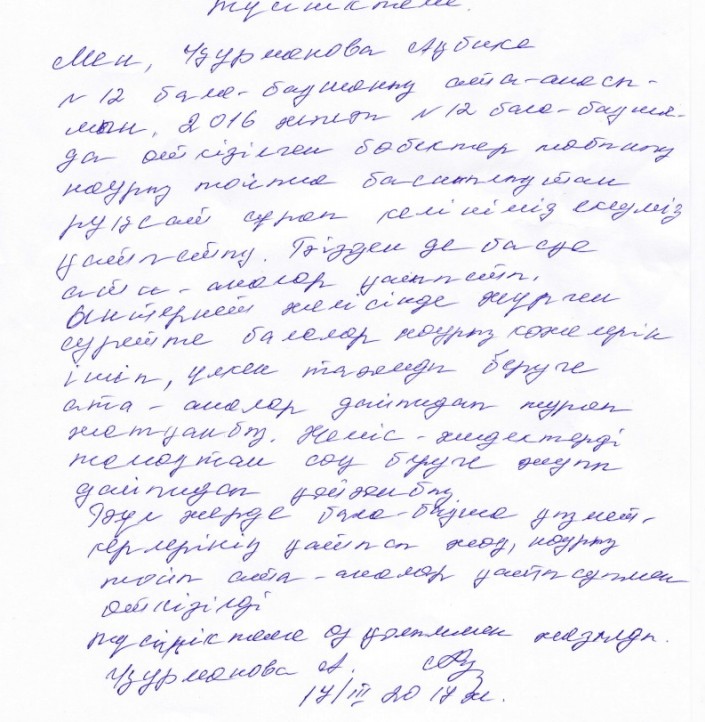 түсініктеме.
Мен, Узурманова Азбике
№12 бала-бақшаның ата-анасы-
мын, 2016 жылы №12 бала-бақша-
да өткізілген бөбектер тобының
наурыз тойына басшылықтан
рұқсат сұрап келініміз екеуміз
қатыстық. Бізден де басқа
ата-аналар қатысты.
Интернет желісінде жүрген
суретте балалар наурыз көжелерін
ішіп, үлкен тағамды беруге
ата-аналар дайындап тұрған
жатқанбыз. Жеміс-жидектерді
тамақтан соң беруге жуып
дайындап қойғанбыз.
Бұл жерде бала-бақша қызмет-
керлерінің қатысы жоқ, наурыз
тойы ата-аналар қатысуымен
өткізілді
түсініктеме өз қолыммен жазылды.
Узурманова А.
17/III 2017ж.